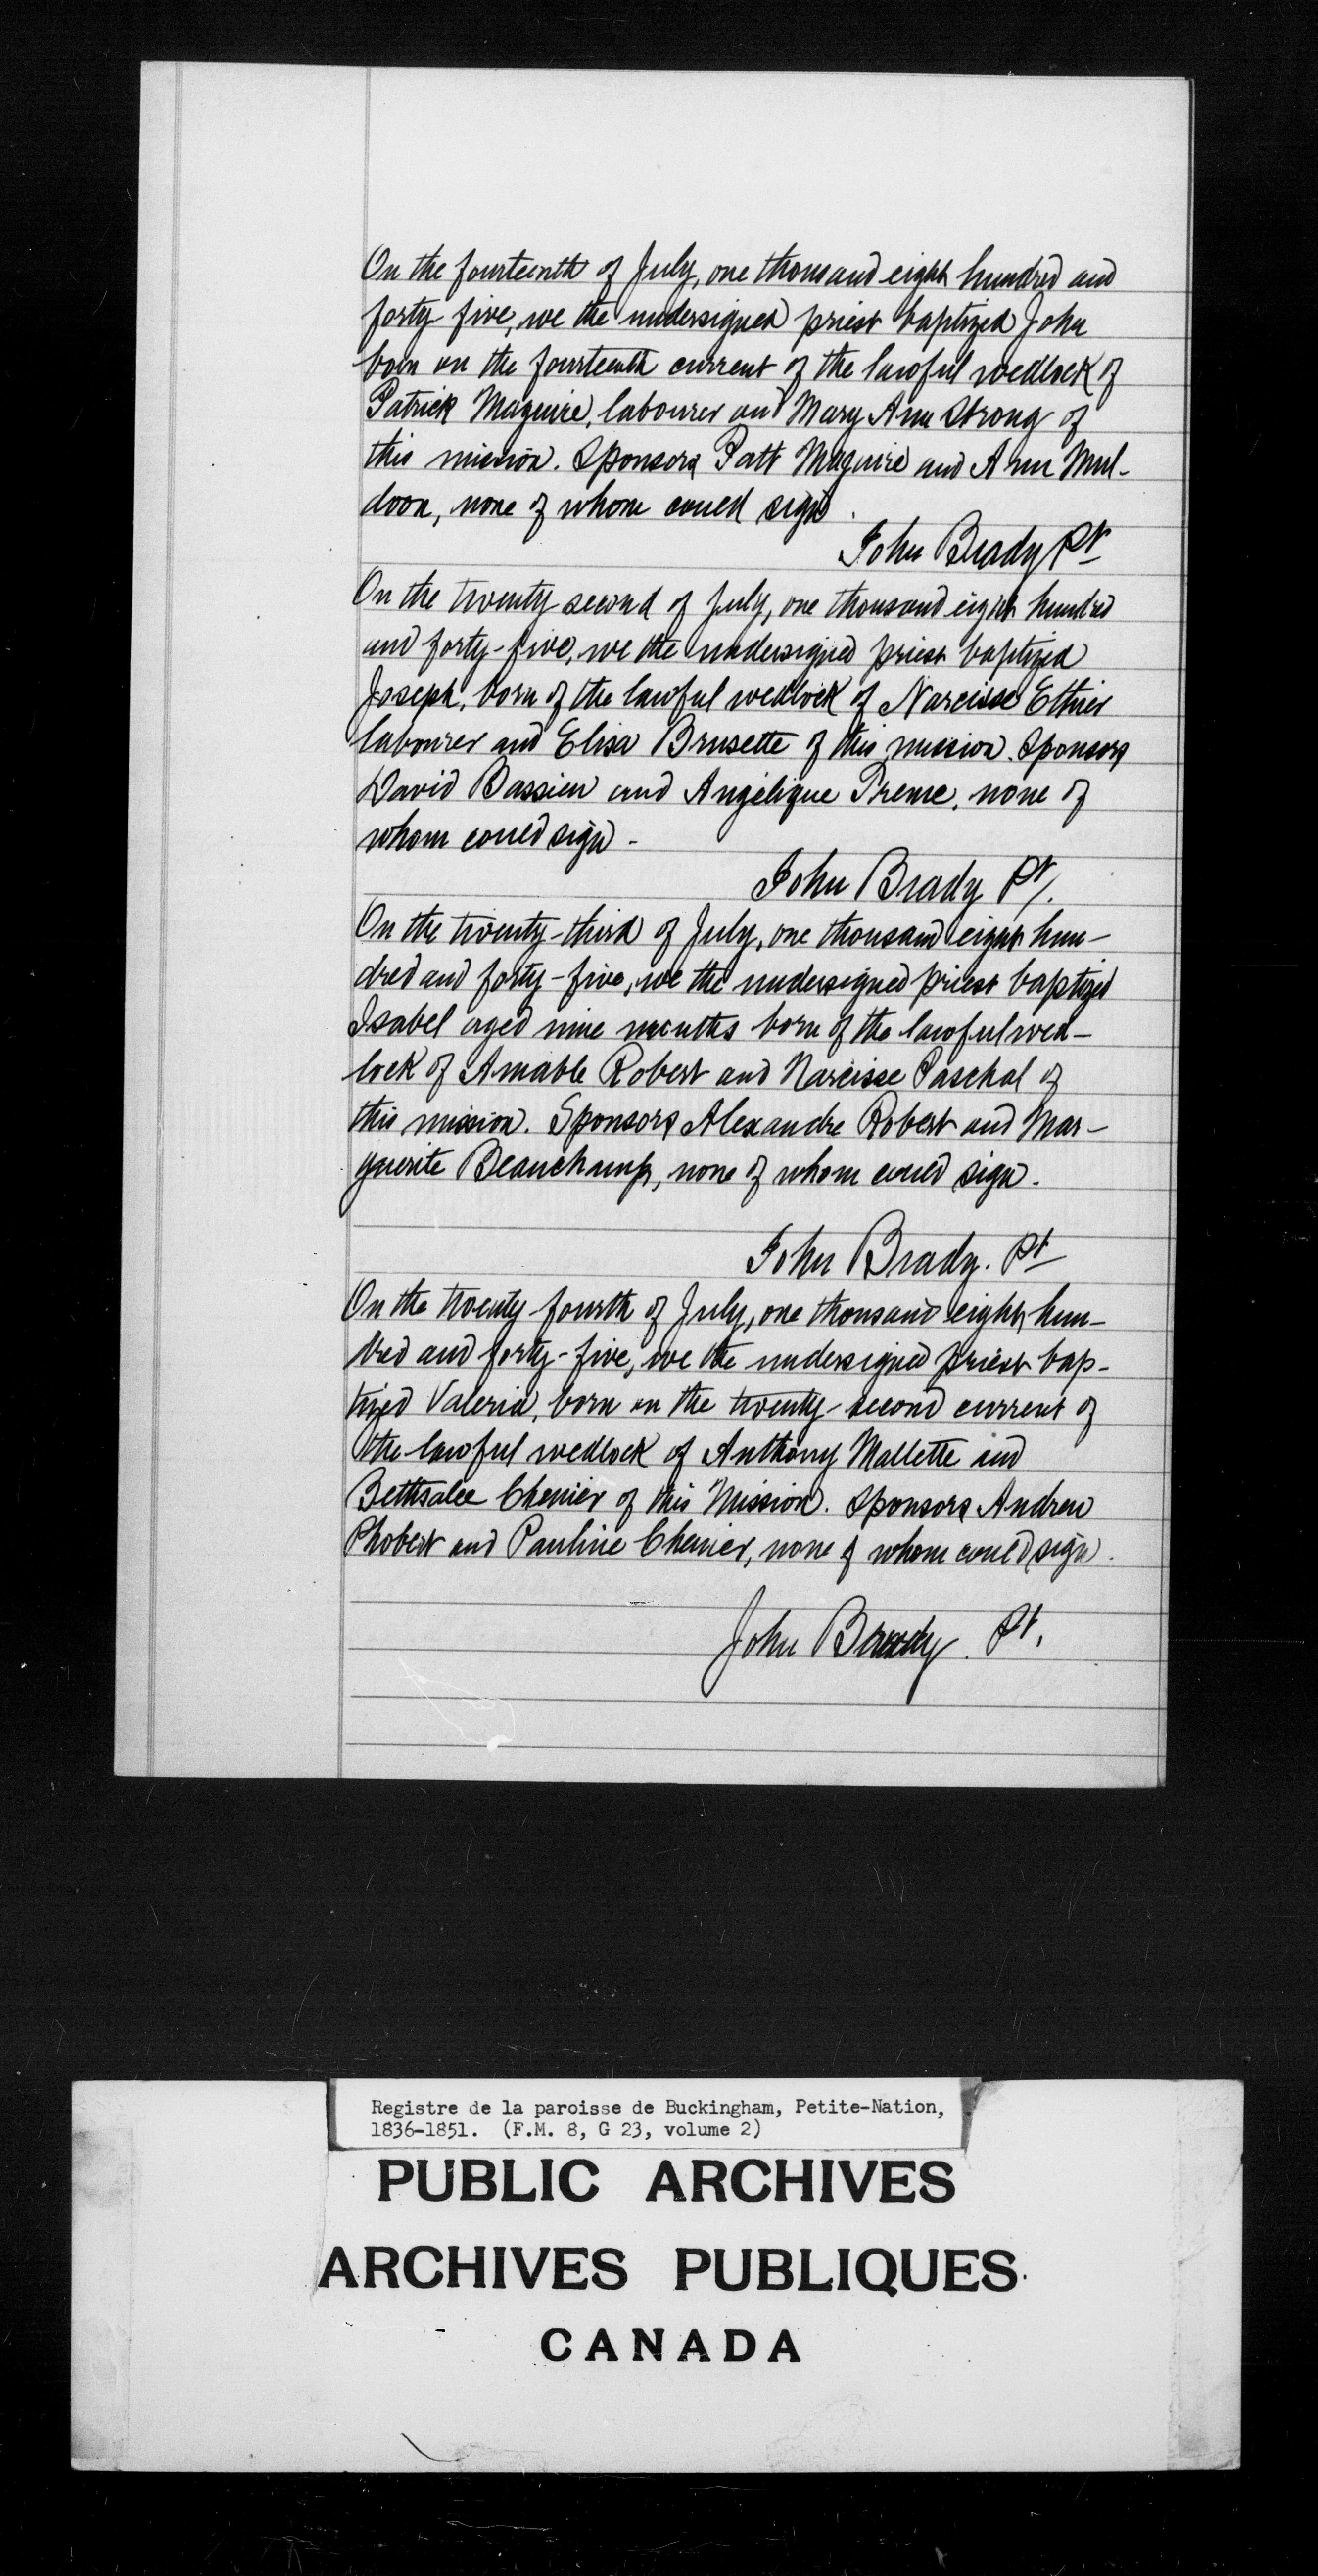 On the fourteenth of July, one thousand eight hundred and
forty five, we the undersigned priest baptized John
born on the fourteenth current of the lawful wedlock of
Patrick Maguire, labourer and Mary Ann Strong of
this mission. Sponsors Patt Maguire and Ann Mul-
doon, none of whom could sign.
John Brady Pt
On the twenty second of July, one thousand eight hundred
and forty-five, we the undersigned priest baptized
Joseph, born of the lawful wedlock of Narcisse Ethier
labourer and Elisa Brusette of this mission. Sponsors
David Bassien and Angélique Preme, none of
whom could sign -
John Brady Pt/.
On the twenty-third of July, one thousand eight hun-
dred and forty-five, we the undersigned priest baptized
Isabel aged nine months born of the lawful wed-
lock of Amable Robert and Narcisse Paschal of
this mission. Sponsors Alexandre Robert and Mar-
guerite Beauchamp, none of whom could sign.
John Brady. Pt
On the twenty fourth of July, one thousand eight hun-
dred and forty-five, we the undersigned priest bap-
tized Valeria, born on the twenty-second current of
the lawful wedlock of Anthony Mallette and
Bethsalee Chenier of this Mission. Sponsors Andrew
Phobert and Pauline Chenier, none of whom could sign.
John Brady. Pt.
Registre de la paroisse de Buckingham, Petite-Nation,
1836-1851. (F.M. 8, G 23, volume 2)
PUBLIC ARCHIVES
ARCHIVES PUBLIQUES
CANADA